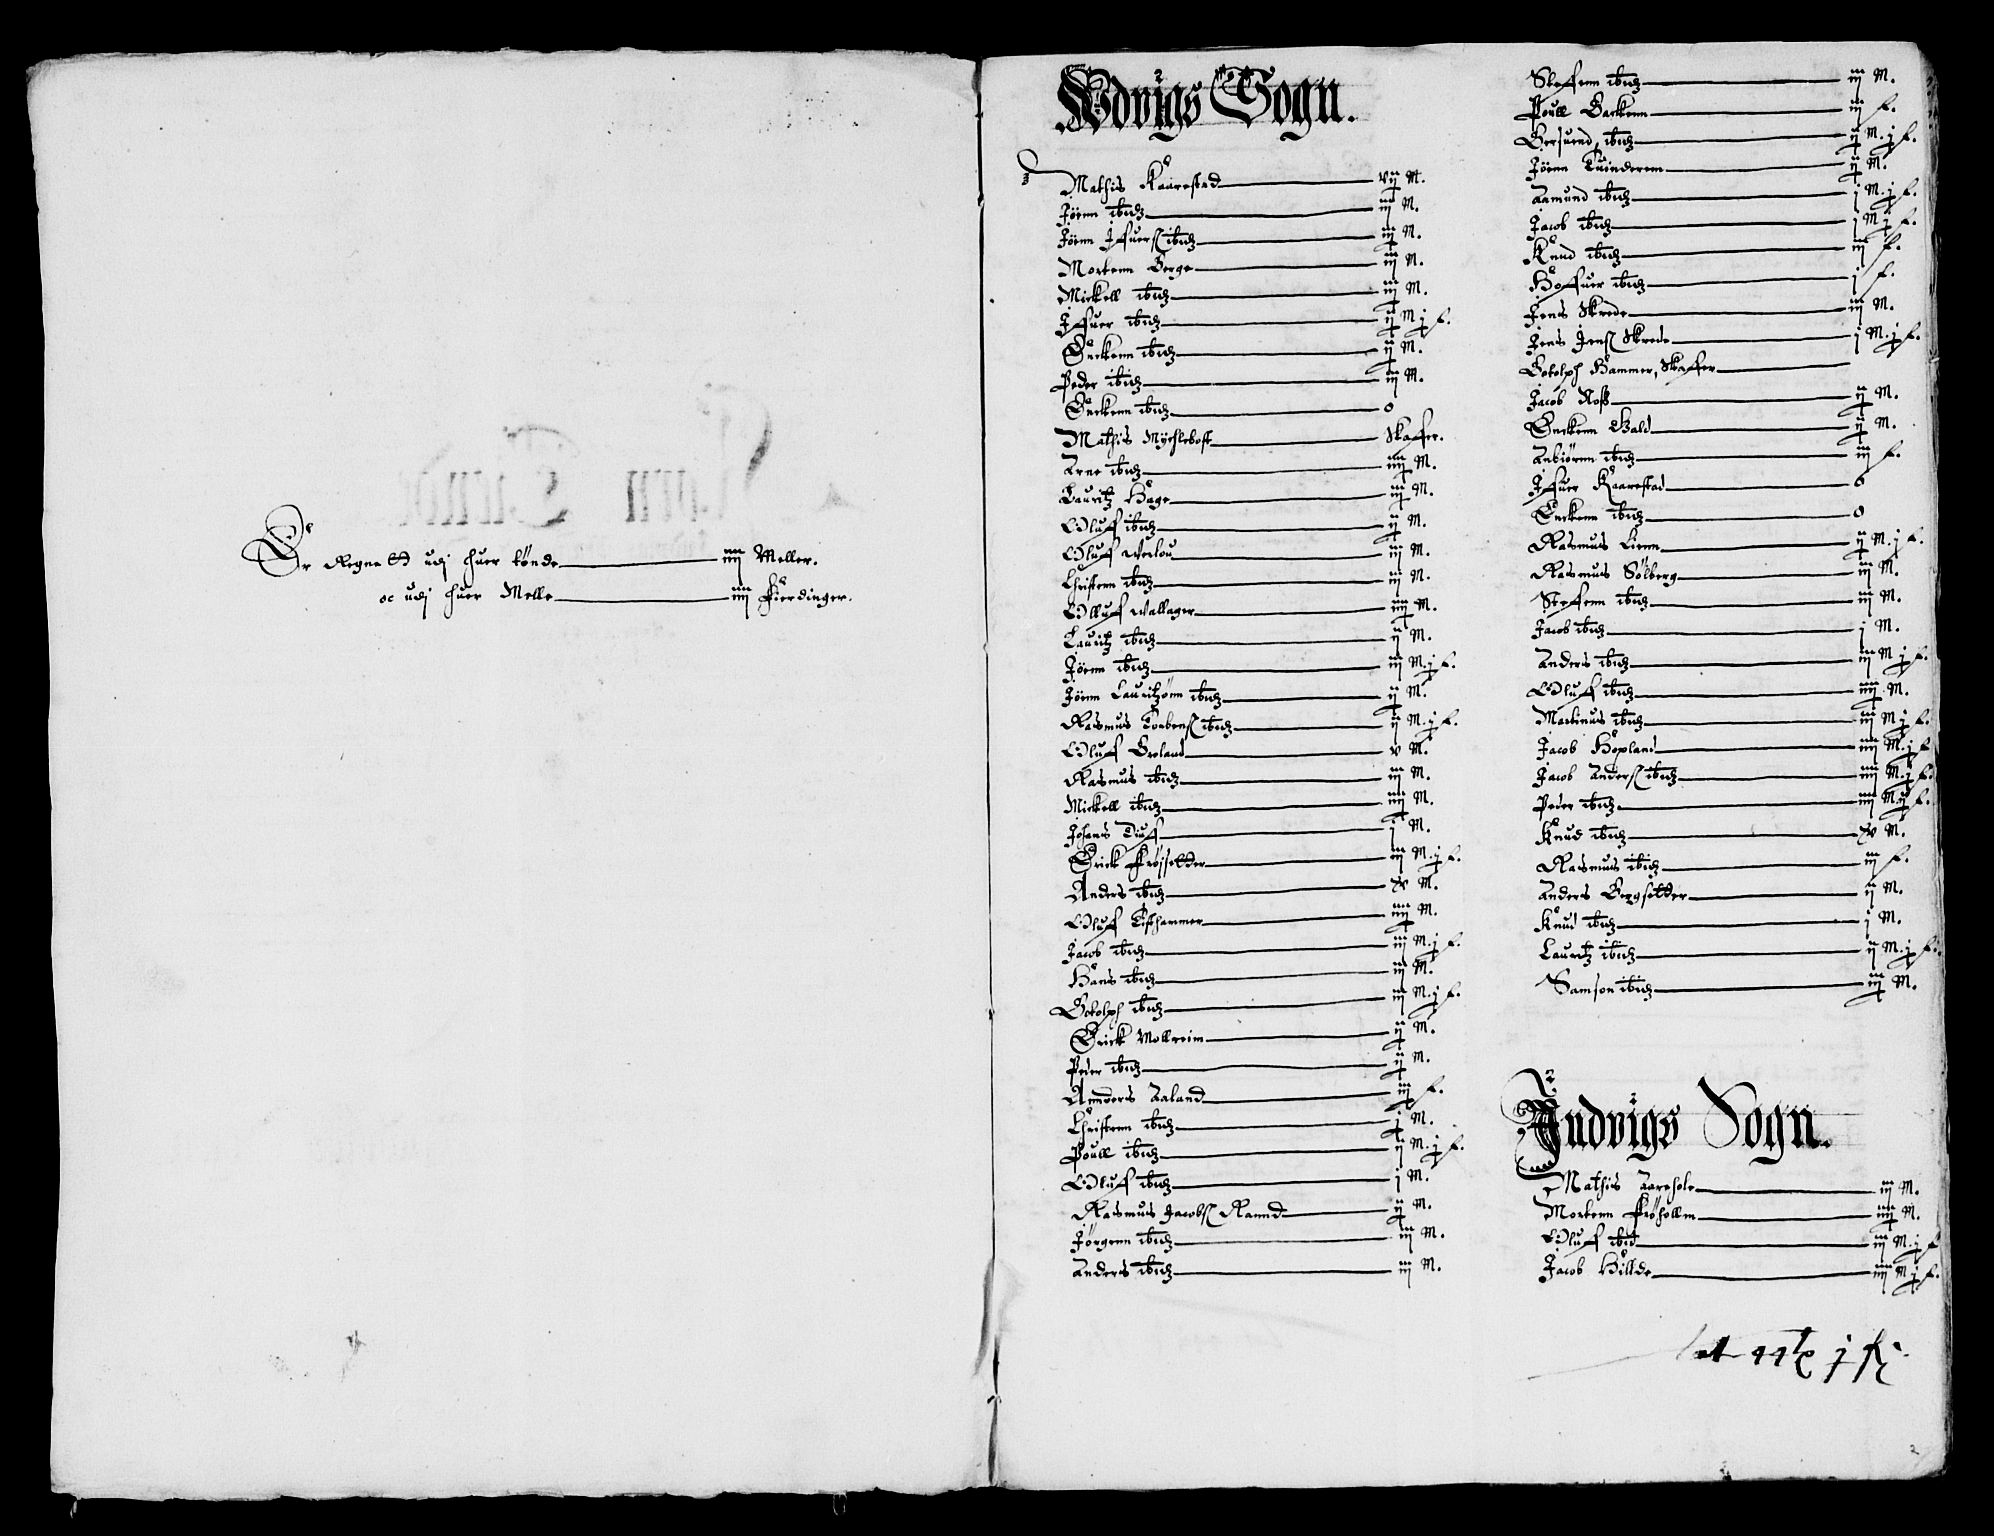 Er Regnett udj huer tønde iiij Meller.
oc udj huer Melle iiij fierdinger.
Udvigs Sogn.
Mathis Kaarestad vij M.
Jørenn ibid iij M.
Jørenn Iffuers ibid iiij M.
Mortenn Berge iiij M.
Mickell ibid iiij M.
Iffuer ibid ij M j f.
Enckenn ibid ij M.
Peder ibid iij M.
Enckenn ibid 0
Mathis Mychlebost Skaffer.
Arne ibid iiij M.
Lauritz Hage iij M.
Oluff ibid ij M.
Oluff Verlou iij M.
Christenn ibid iij M.
Olluff Vallager iiij M.
Lauritz ibid ij M.
Jørenn ibid iij M. j f.
Jørenn Lauritzønn ibid ij M.
Rasmus Torbens ibid ij M. j f.
Oluff Groland v M.
Rasmus ibid iij M.
Mickell ibid iiij M.
Johans Tiuff j M.
Erick Frøisetter iij M. j f.
Anders ibid xv M.
Oluff Tisthammer iiij M.
Jacob ibid iij M. j f.
Hans ibid iij M.
Botolph ibid iij M. j f.
Erick Mollrein ij M.
Peder ibid ij M.
Annders Aaland iij f.
Christenn ibid j M.
Poull ibid ij M. j f.
Oluff ibid j M.
Rasmus Jacobs Rannd ij M.
Jørgenn ibid iij M.
Anders ibid iij M.
Steffenn ibid iij M.
Poull Backenn iij f.
Gersuend ibid ij M. j f.
Jørenn Tuinderem ij M.
Aamund ibid j M. j f.
Jacob ibid j M j f.
Knud ibid iij f.
Hoffuer ibid j f.
Jens Skrede iij M.
Jens Jens Skrede j M. j f.
Botolph Hammer, Skaffer
Jacob Noss ij M.
Enckenn Hald ij M.
Anbiørnn ibid iij f.
Iffuer Kaarestad 0
Enckenn ibid 0
Rasmus Lienn ij M. j f.
Rasmus Solberg iij M.
Steffenn ibid iij M.
Jacob ibid j M.
Anders ibid iij M j f.
Oluff ibid iiij M.
Martinus ibid iij M j f.
Jacob Hopland iiij M. j f
Jacob Anders ibid iiij M. j f.
Peder ibid iiij M. ij f.
Knud ibid xv M.
Rasmus ibid iij f.
Anders Bergsetter ij M.
Knud ibid j M.
Lauritz ibid ij M. j f.
Samson ibid iij M.
Indvigs Sogn.
Mathis Aarehole iij M.
Mortenn Frøhollm iiij M.
Oluff ibid iij M. j f
Jacob Hillde iiij M j f.
2